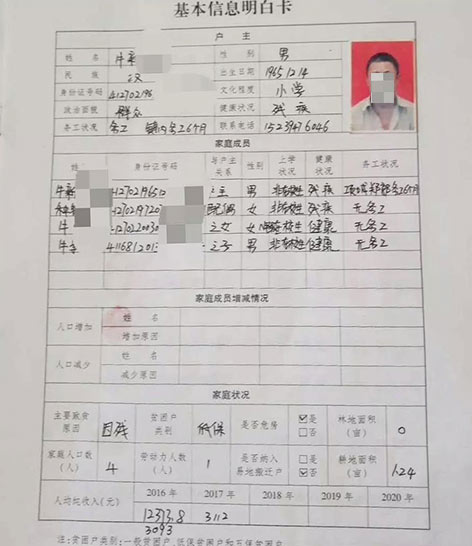 基本信息明白卡
户 主
姓 名 牛 性 别 男
民 族 汉 出生日期 1965.12.14
身份证号码 412702196 文化程度 小学
政治面貌 群众 健康状况 残疾
务工状况 务工 务工6个月 联系电话 15239476046
家庭成员
姓 身份证号码 与户主关系 性别 上学状况 健康状况 务工状况
牛 户主 男 非在校生 残疾
配偶 女 非在校生 残疾 无务工
牛 之女 女 在校生 健康 无务工
牛 411681201 之子 男 非在校生 健康 无务工
家庭成员增减情况
人口增加 姓 名
增加原因
人口减少 姓 名
减少原因
家庭状况
主要致贫原因 因残 贫困户类别 低保 是否危房 ☑是 □否 林地面积(亩) 0
家庭人口数(人) 4 劳动力人数(人) 1 是否纳入易地搬迁户 □是 ☑否 耕地面积(亩)
人均纯收入(元) 2016 年 2017 年 2018 年 2019 年 2020 年
3112
3093
注:贫困户类别:一般贫困户、低保贫困户和五保贫困户